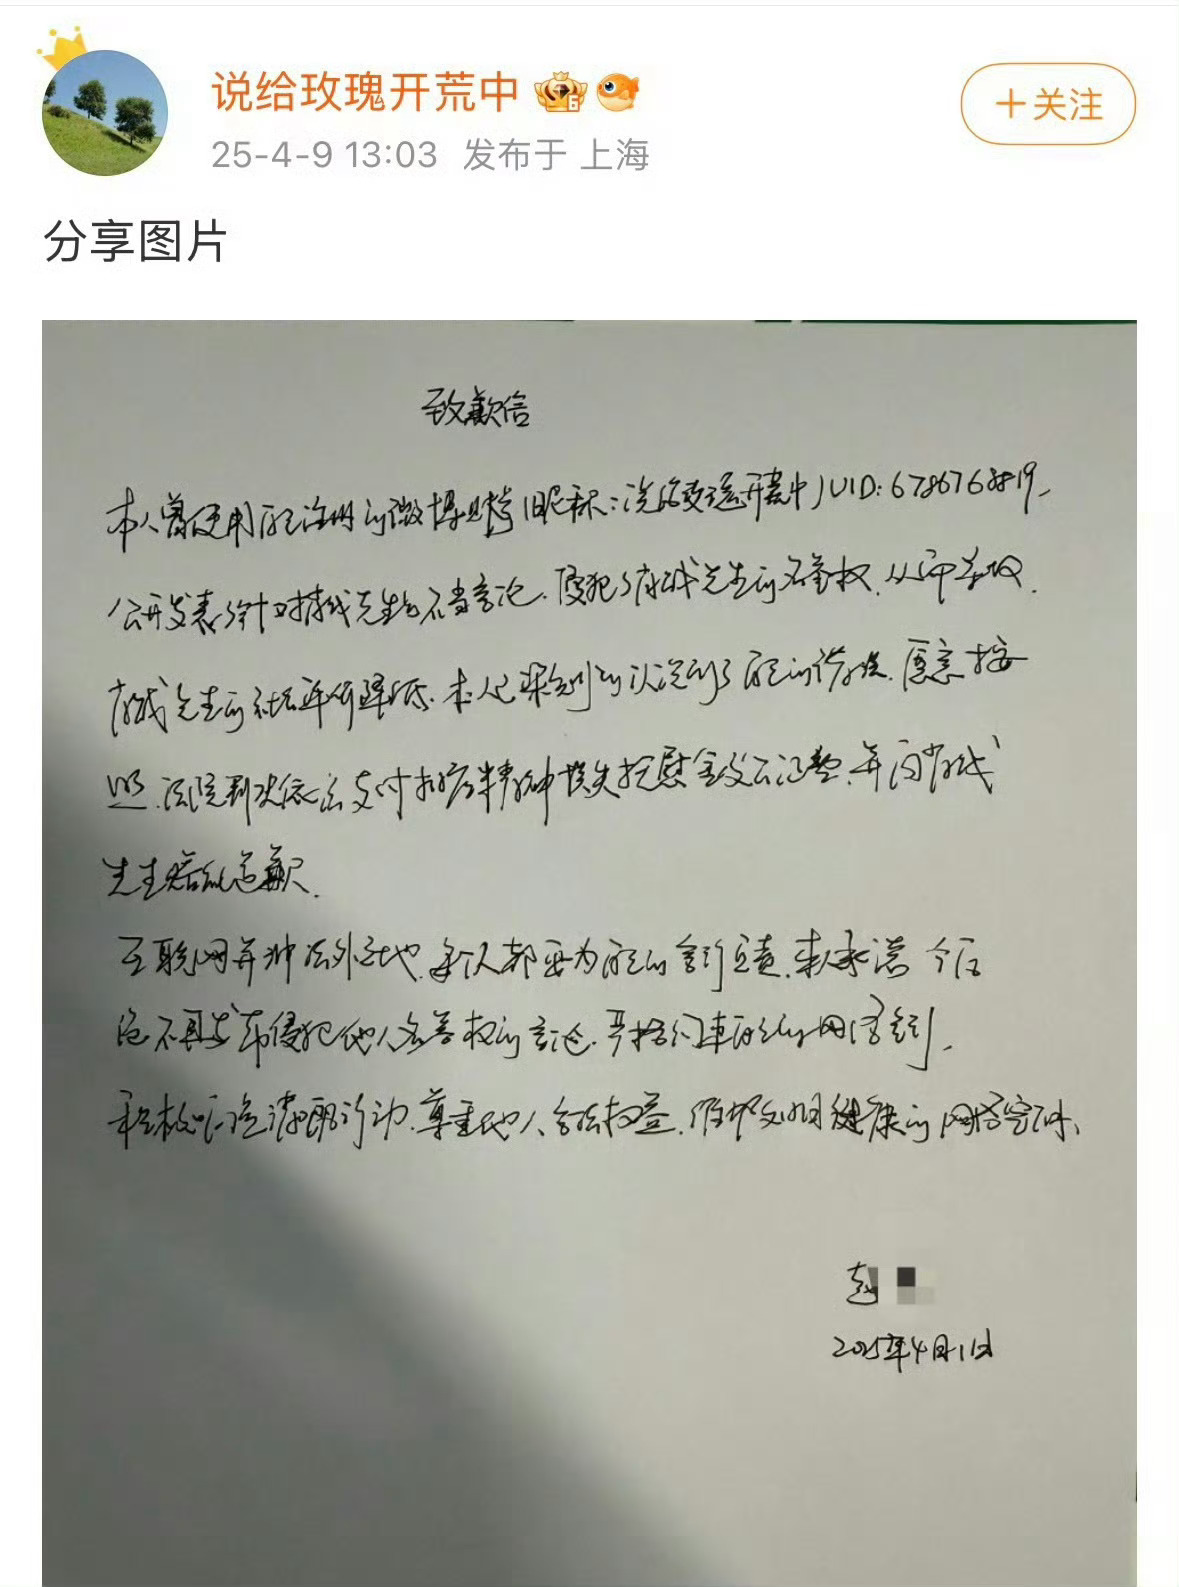 说给玫瑰开荒中
25-4-9 13:03 发布于 上海
+关注
分享图片
致歉信
本人曾使用自己注册的微博账号(昵称:说给玫瑰开荒中)UID:6786768819,
公开发表了针对 先生的不当言论,侵犯了 先生的名誉权,从而导致
先生的社会评价降低。本人已深刻的认识到了自己的错误,愿意按
照法院判决依法支付 精神损失抚慰金及公证费,并向
先生赔礼道歉。
互联网并非法外之地,每个人都要为自己的言行负责,本人承诺今后
绝不再发布侵犯他人名誉权的言论,严格约束自己的网络言行,
积极 清朗行动,尊重他人合法权益,维护文明健康的网络空间。
赵
2025年4月1日